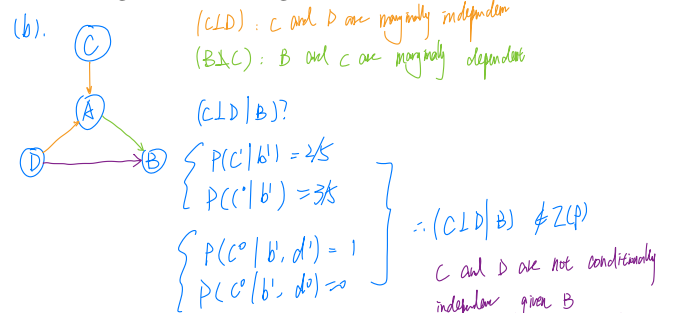 (b).
(C⊥D) : C and D are marginally independen
(B⊥̸C) : B and C are marginally dependent
C
A
D
B
(C⊥D|B)?
P(C¹|b¹) = 2/5
P(C⁰|b¹) = 3/5
P(C⁰|b¹, d¹) = 1
P(C⁰|b¹, d⁰) = 0
∴ (C⊥D|B) ∉ I(P)
C and D are not conditionally
independen given B